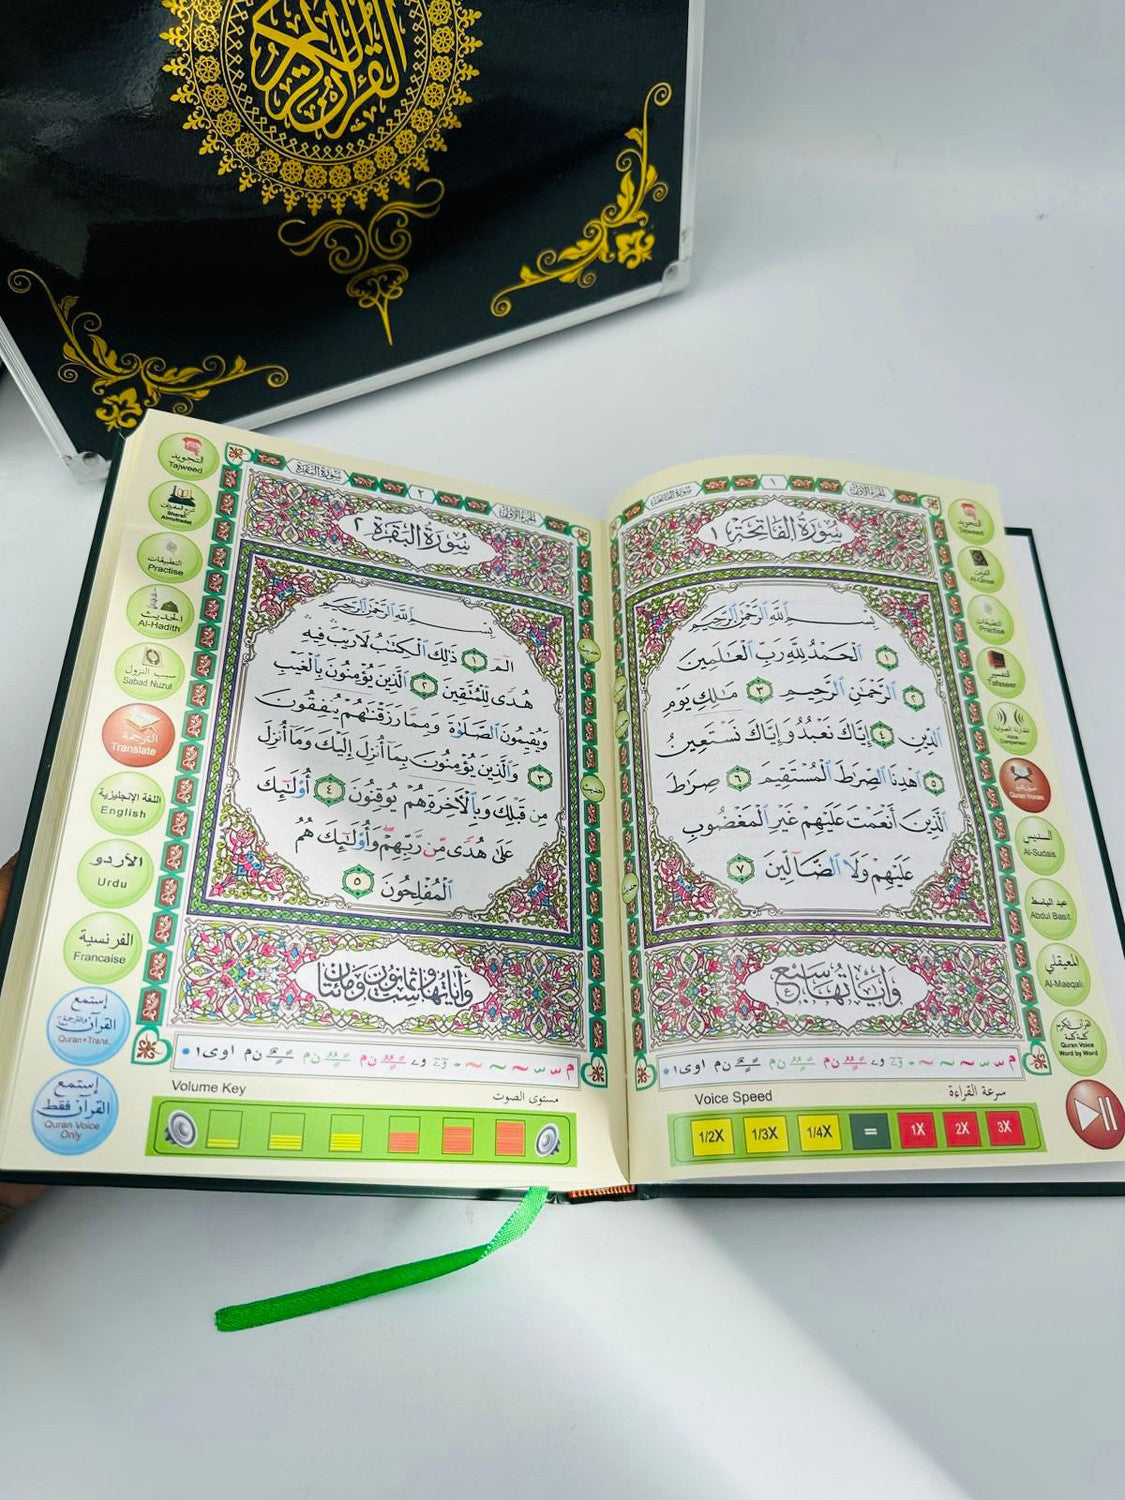 القرآن الكريم
سورة الفاتحة
١
الجزء الأول
سورة الفاتحة ١
بسم الله الرحمن الرحيم
١ الحمد لله رب العالمين
٢ الرحمن الرحيم ٣ مالك يوم
الدين ٤ إياك نعبد وإياك نستعين
٥ اهدنا الصراط المستقيم ٦ صراط
الذين أنعمت عليهم غير المغضوب
عليهم ولا الضالين ٧
وآياتها سبع
التجويد
Tajweed
التطبيقات
Practise
التفسير
Tafaseer
Voice
Comparison
Quran Voices
السديس
Al-Sudais
عبد الباسط
Abdul Basit
المعيقلي
Al-Maeqali
القرآن الكريم
كلمة كلمة
Quran Voice
Word by Word
Voice Speed
سرعة القراءة
1/2X 1/3X 1/4X = 1X 2X 3X
سورة البقرة
٢
الجزء الأول
سورة البقرة ٢
بسم الله الرحمن الرحيم
الم ١ ذلك الكتب لا ريب فيه
هدى للمتقين ٢ الذين يؤمنون بالغيب
ويقيمون الصلوة ومما رزقنهم ينفقون
٣ والذين يؤمنون بما أنزل إليك وما أنزل
من قبلك وبالآخرة هم يوقنون ٤ أولئك
على هدى من ربهم وأولئك هم
المفلحون ٥
وآياتها ست وثمانون ومائتان
حديث
حديث
التجويد
Tajweed
شرح المفردات
Sharah
Almufradat
التطبيقات
Practise
الحديث
Al-Hadith
سبب النزول
Sabad Nuzul
الترجمة
Translate
اللغة الإنجليزية
English
الأردو
Urdu
الفرنسية
Francaise
إستمع
القرآن والترجمة
Quran+Trans.
إستمع
القرآن فقط
Quran Voice
Only
Volume Key
مستوى الصوت